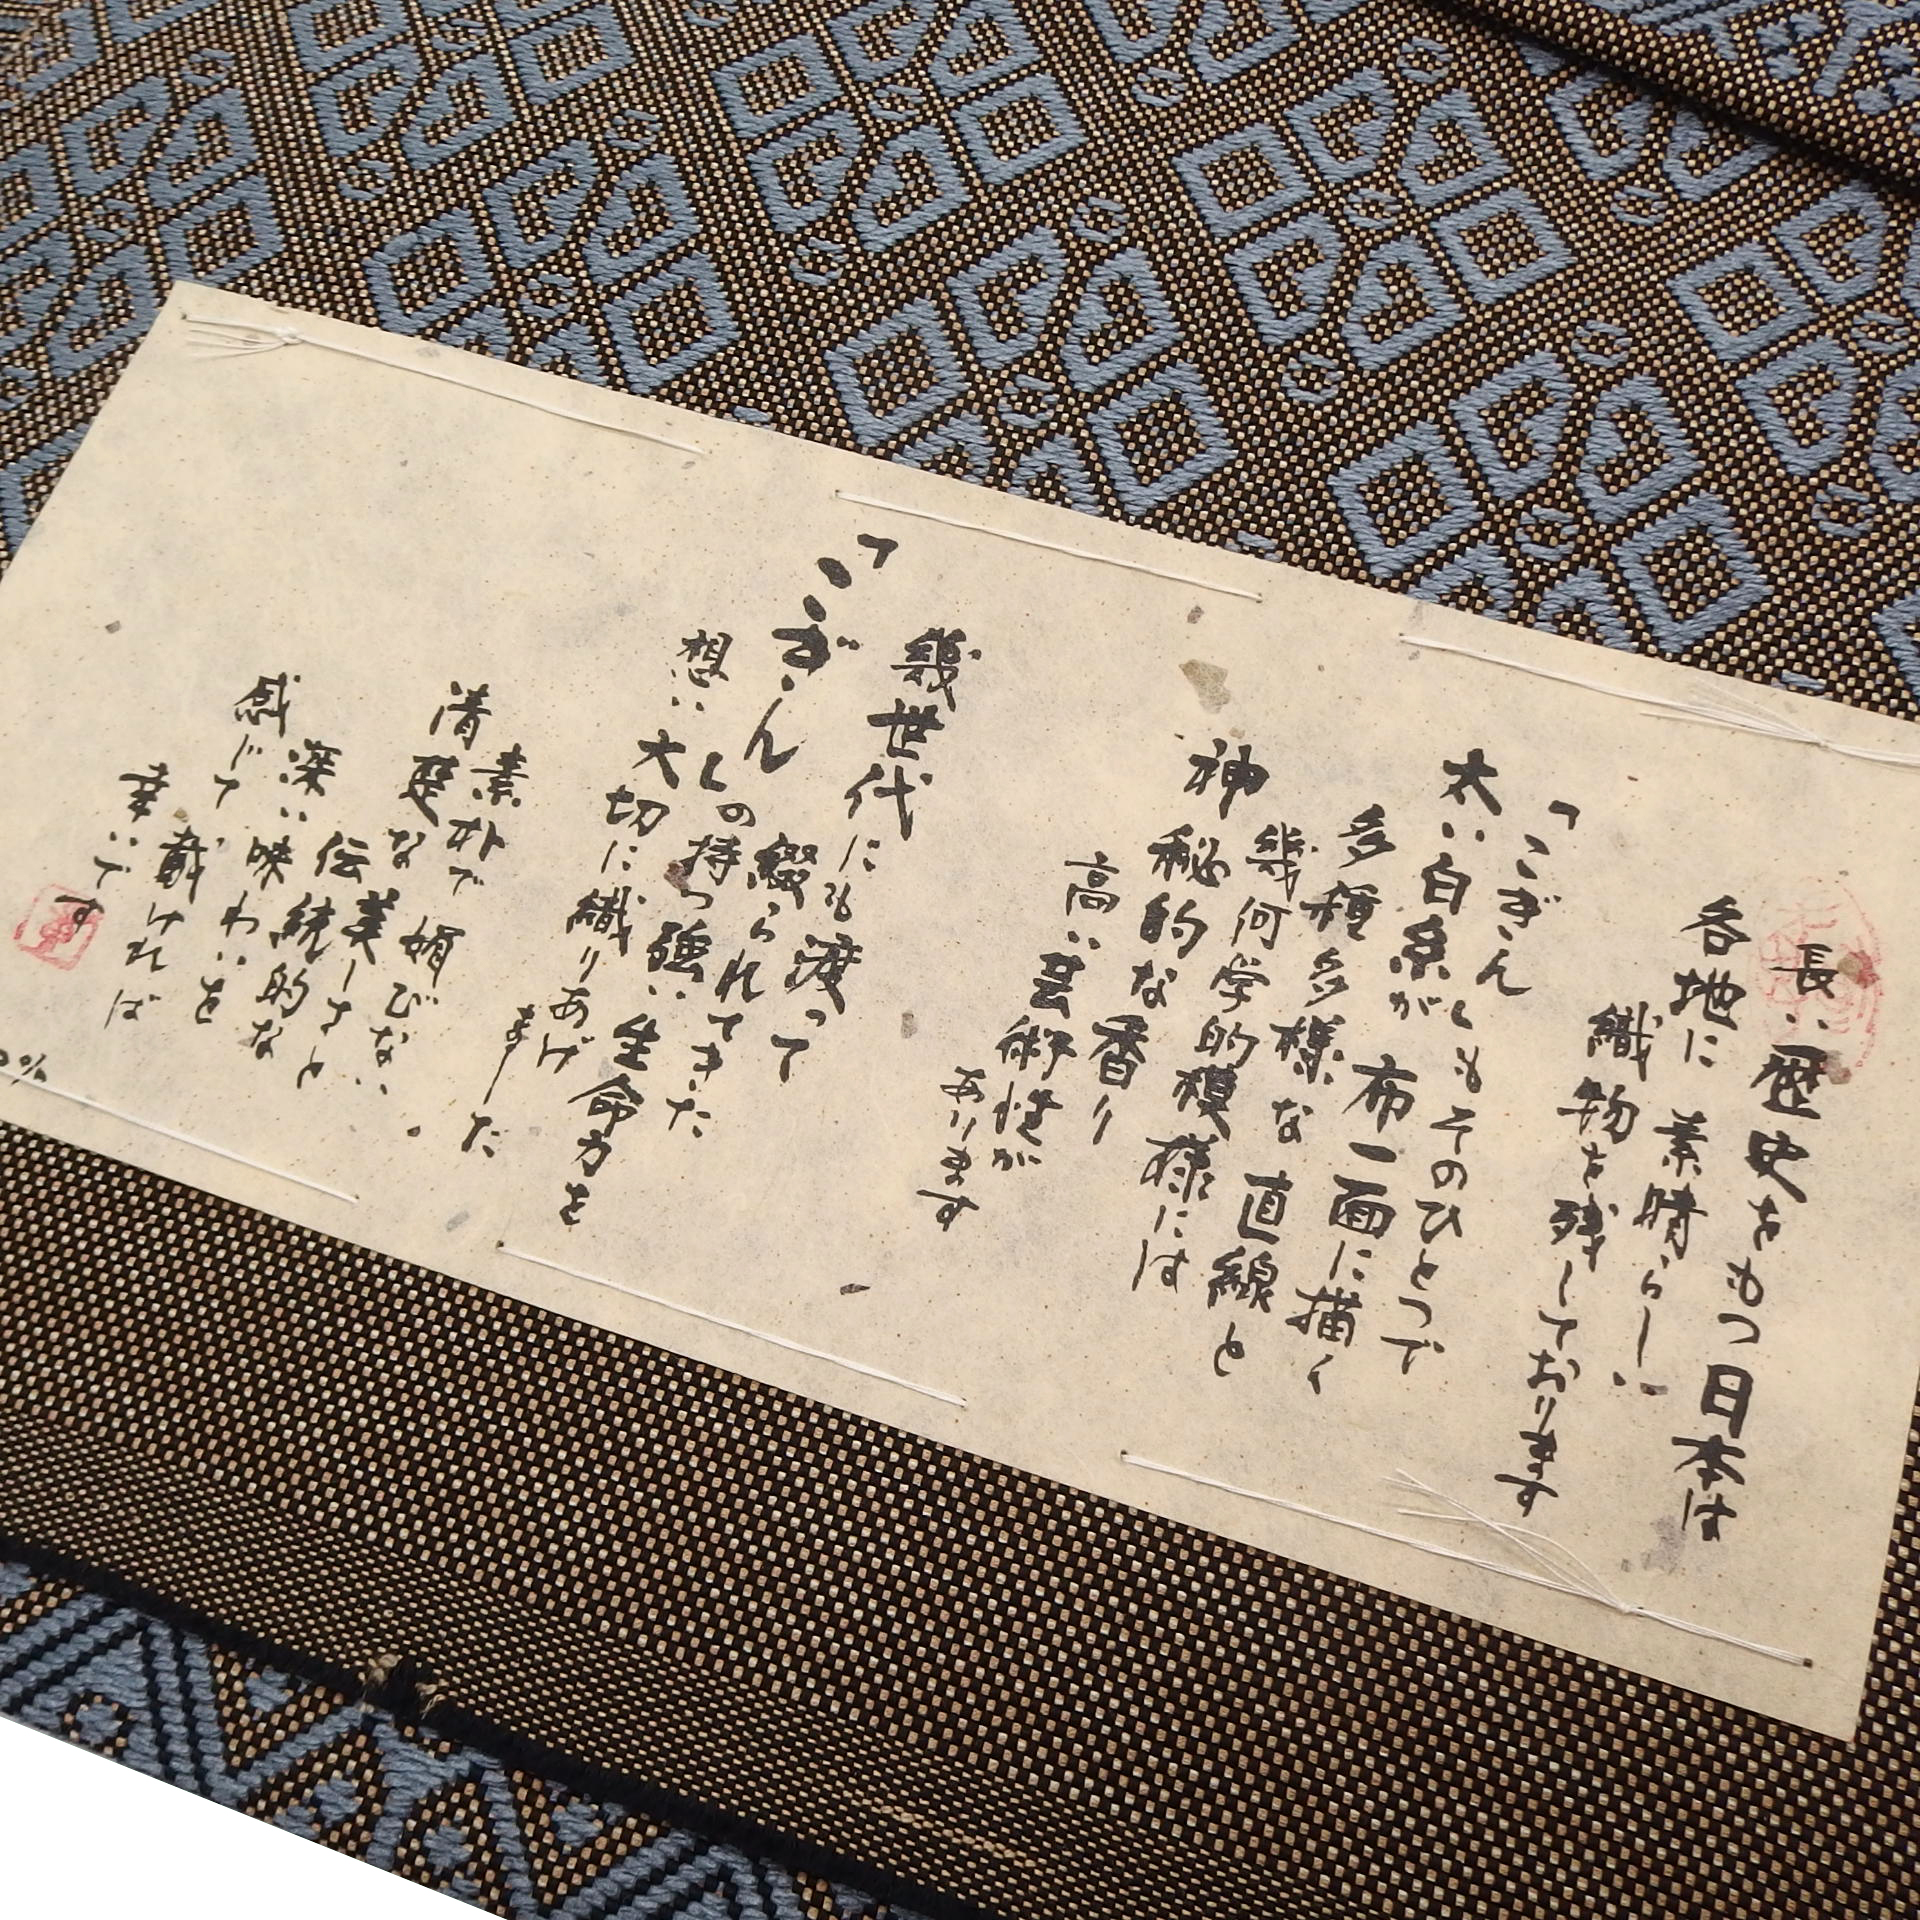 長い歴史をもつ日本は
各地に素晴らしい
織物を残しております
「こぎん」もそのひとつで
太い白糸が布一面に描く
多種多様な直線と
幾何学的模様には
神秘的な香り
高い芸術性が
あります
幾世代にも渡って
綴られてきた
「こぎん」の持つ強い生命力を
想い大切に織りあげ
ました
素朴で媚びない
清楚な美しさと
伝統的な
深い味わいを
感じて戴ければ
幸いです